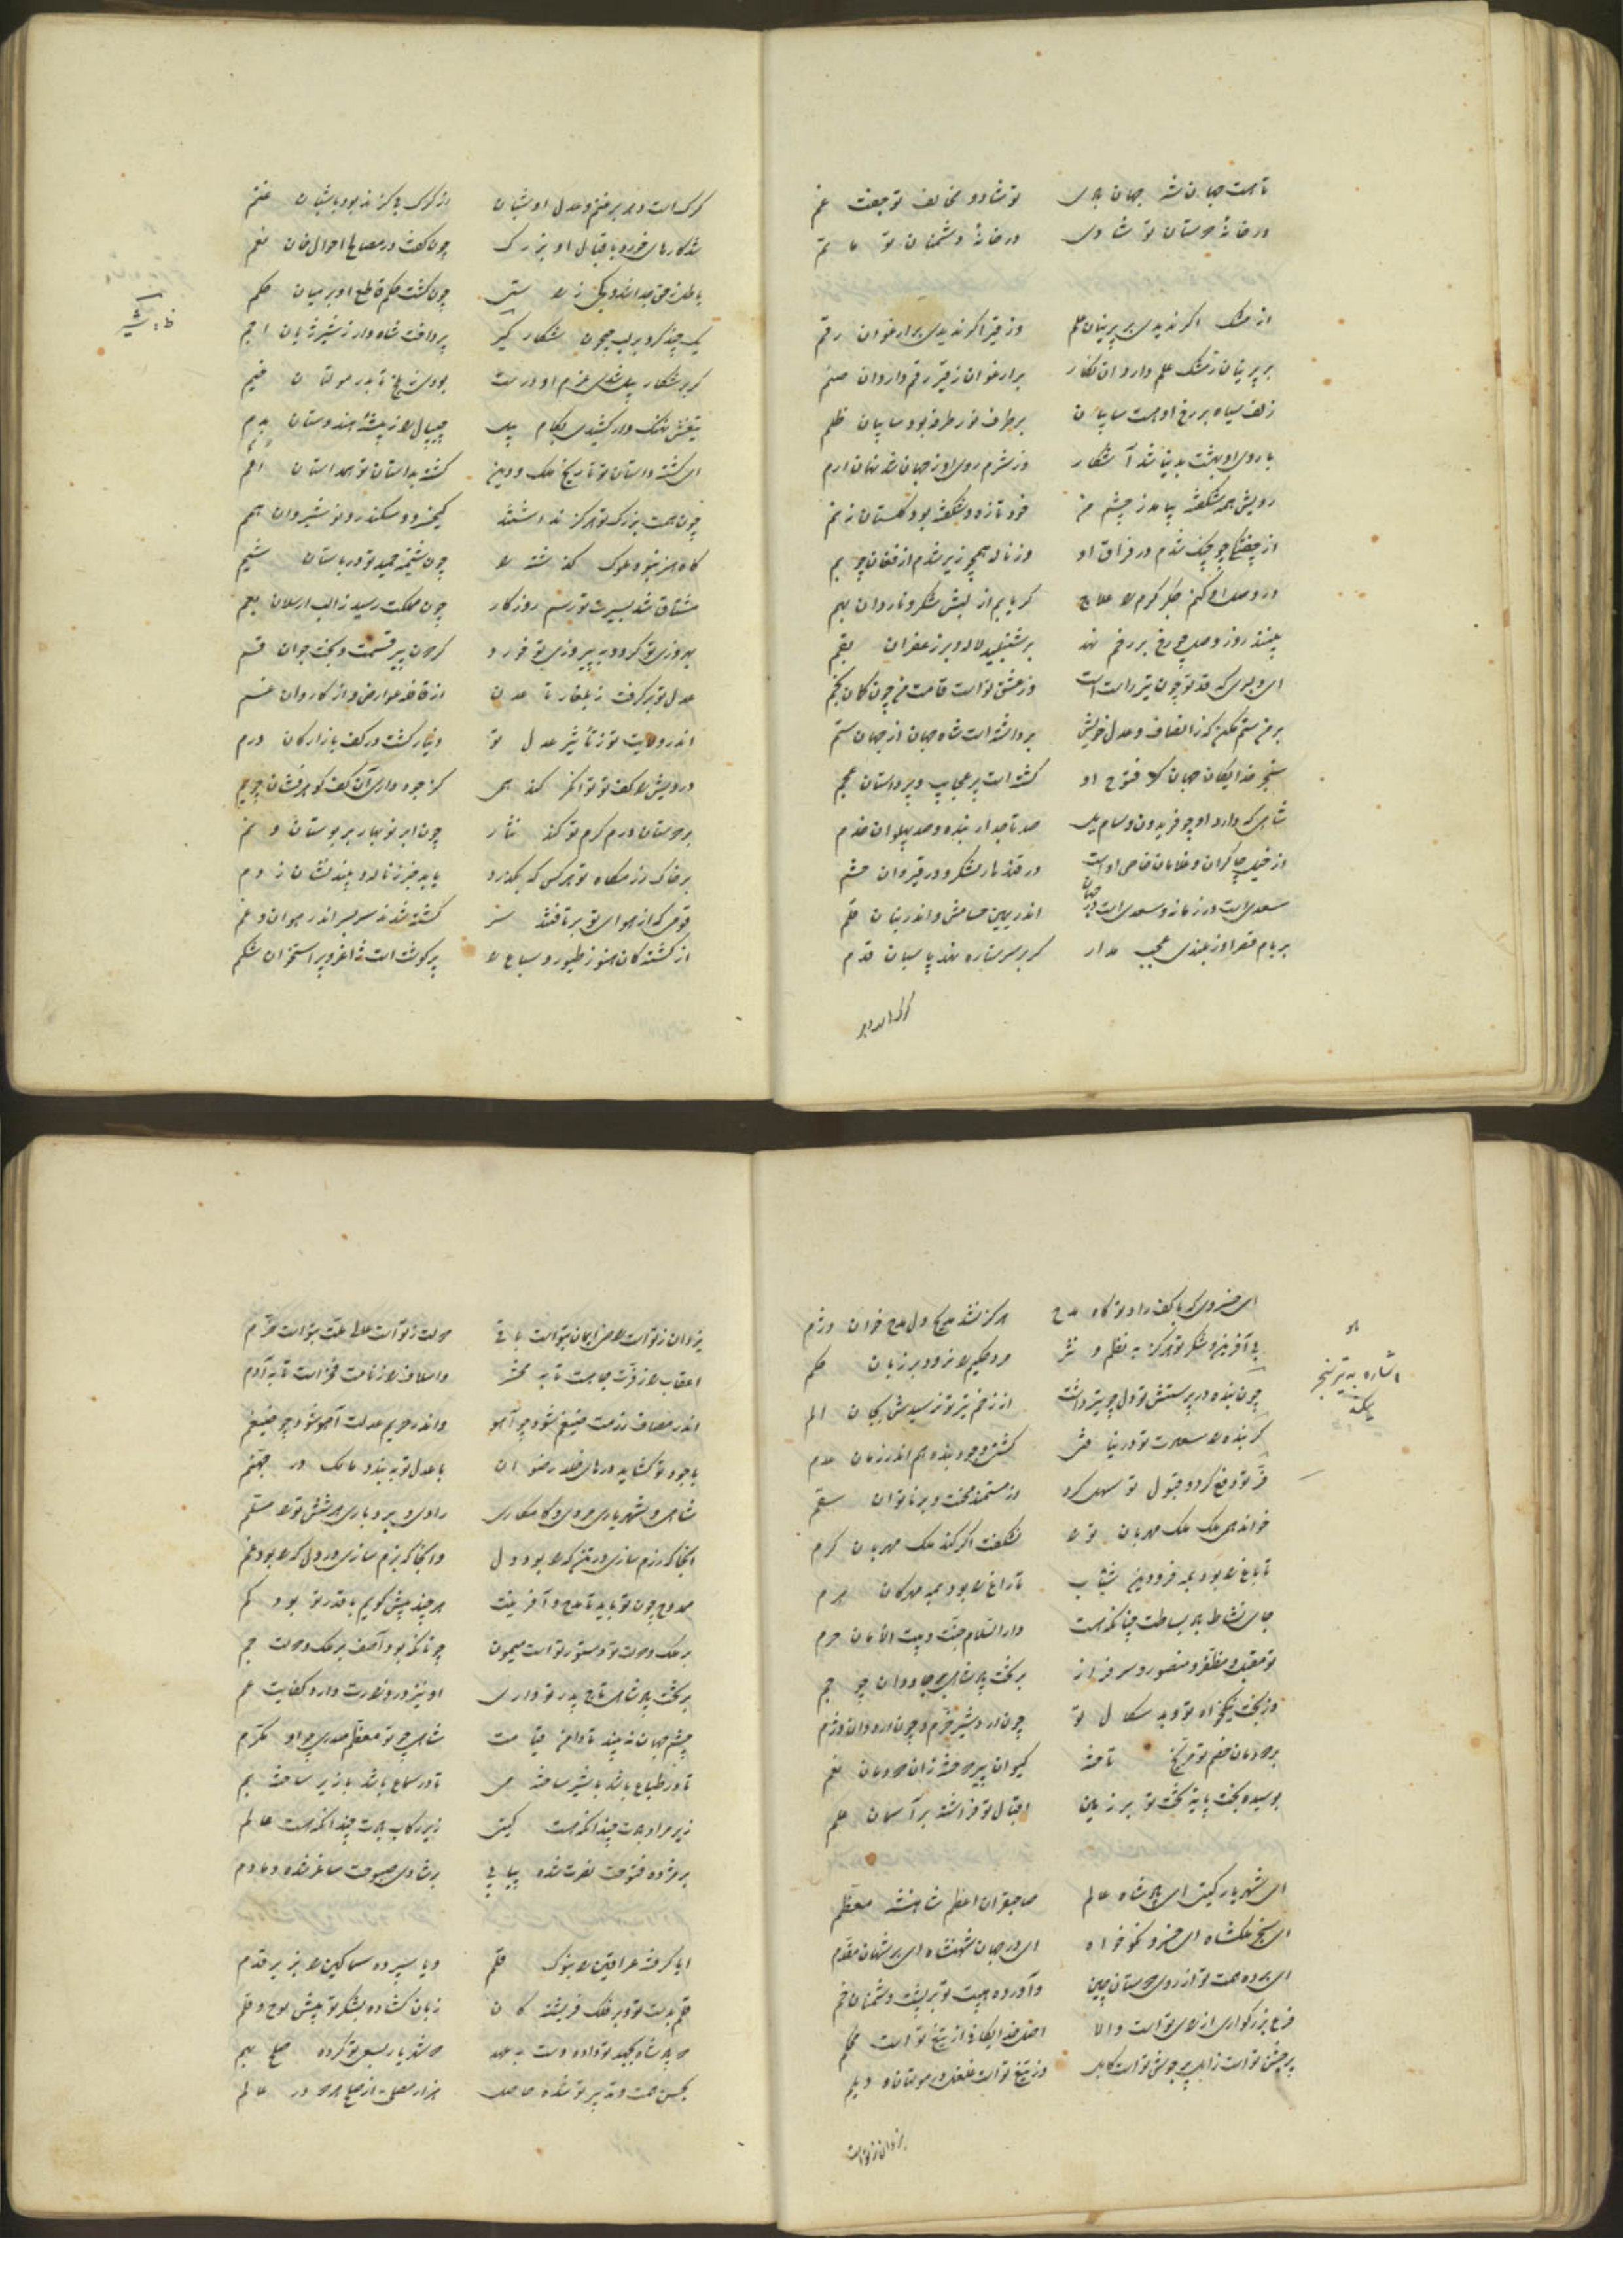 تا هست جهان شه جهان بادی تو شاد و مخالف تو جفت غم
در خانهٔ دوستان تو شادی در خانهٔ دشمنان تو ماتم
از مشک اگر ندیدی بر پرنیان علم وز قیر اگر ندیدی بر ارغوان رقم
بر پرنیان ز مشک علم دارد آن نگار بر ارغوان ز قیر رقم دارد آن صنم
زلف سیاه بر رخ او هست سایبان بر طرف نور طرفه بود سایبان ظلم
با روی او بهشت به دنیا شد آشکار وز شرم روی او ز جهان شد نهان ارم
رویش همه شکفته بباید ز چشم من خود تازه و شکفته بود گلستان ز نم
از چفتگی چو چنگ شدم در فراق او وز ناله همچو زیر شدم از فغان چو بم
در وصل او کنم جگر گرم را علاج گر یابم از لبش شکر و ناردان بهم
بینند روز وصل چو رخ بر رخم نهد بر شنبلید لاله و بر زعفران بقم
ای دلبری که قد تو چون تیر راست است وز عشق تو است قامت من چون کمان بخم
بر من ستم مکن که ز انصاف و عدل خویش برداشته است شاه جهان از جهان ستم
سنجر خدایگان جهان کز فتوح او گشته است پر عجایب و پر داستان عجم
شاهی که دارد او چو فریدون و سام یل صد تاجدار بنده و صد پهلوان خدم
از خیل چاکران و غلامان خاص اوست در قندهار لشکر و در قیروان حشم
سعدی است در زمانه و سعدی است در جهان اندر یمین حسامش و اندر بنان قلم
بر بام قصر او ز بلندی عجب مدار گر بر سر ستاره نهد پاسبان قدم
گرگ است و نیز بر غنم و عدل او شبان از گرگ کی گزند بود با شبان غنم
شد کارهای خرد به اقبال او بزرگ چون گفت در مصالح احوال خان نعم
باطل ز حق جدا شد و کژی ز راستی چون گشت حکم قاطع او بر میان حکم
یک چند کرد بر لب جیحون شکار شیر پرداخت شاهوار ز شیر ژیان اجم
گر در شکار پیل شدی عزم او درست بودی ز بلخ تا به در مولتان خیم
تیغش نهنگ وار کشیدی بکام پیل جیپال را ز بیشهٔ هندوستان بدم
ای گشته داستان تو تاریخ ملک و دین گشته به داستان تو همداستان امم
چون همت بزرگ تو هرگز نداشتند کیخسرو و سکندر و نوشیروان همم
گاه هنر نبود ملوک گذشته را چون شیمهٔ حمید تو در باستان شیم
مشتاق شد به سیرت تو رسم روزگار چون مملکت رسید ز الب ارسلان بعم
بهروزی تو کرد و به پیروزی تو خورد گردون پیر قسمت و بخت جوان قسم
عدل تو برگرفت ز بلغار تا عدن از قافله عوارض و از کاروان غسم
اندر ولایت تو ز تأثیر عدل تو دینار گشت در کف بازارگان درم
درویش را کف تو توانگر کند همی کز جود داری آن کف گوهرفشان چو یم
بر دوستان درم کرم تو کند نثار چون ابر نوبهار بر بوستان دیم
بر خاک رزمگاه تو هر کس که بگذرد یابد خبر ز ناله و بیند نشان ز دم
قومی که از هوای تو برتافتند سر گشتند سر به سر اندر هوان و غم
از کشتگان هنوز طیور و سباع را پر گوشت است ژاغر و پر استخوان شکم
ای خسروی که با کف راد تو گاه مدح هرگز نشد هیچ دل مدح خوان دژم
بی آفرین و شکر تو هرگز به نظم و نثر مرد حکیم را نرود بر زبان حکم
چون بنده در پرستش تو دل چو تیر داشت از زخم تیر تو نرسیدش بجان الم
گر بنده را سعادت تو در نیافتی گشتی وجود بنده هم اندر زمان عدم
فر تو دفع کرد و قبول تو سهل کرد از مستمند محنت و بر ناتوان سقم
خواند همی ملک ملک مهربان تو را نشگفت اگر کند ملک مهربان کرم
تا باغ را بود به مه فرودین شباب تا راغ را بود به مه مهرگان هرم
جای نشاط باد بساطت چنانکه هست دارالسلام جنت و بیت الامان حرم
تو مقبل و مظفر و منصور و سرفراز بر تخت پادشاهی جاودان چو جم
وز بخت نیکخواه تو و بدسگال تو چون اردشیر خرم و چون اردوان دژم
بر دودمان خصم تو مریخ تاخته کیوان پیر دوخته زان دودمان نقم
بوسیده بخت پایهٔ تخت تو بر زمین اقبال تو فراشته بر آسمان علم
ای شهریار گیتی ای پادشاه عالم صاحبقران اعظم شاهنشه معظم
ای سنجر ملکشاه ای خسرو نکوخواه ای در جهان شهنشاه ای بر شهان مقدم
ای برده همت تو از روی دوستان چین وآورده هیبت تو بر پشت دشمنان خم
فرع بزرگواری از رای تو است والا اصل خدایگانی از تیغ تو است محکم
پر جشن تو است زابل پر جوش تو است کابل وز تیغ تو است غلغل در مولتان و دیلم
یزدان ز تو است راضی ایمان به تو است باقی دولت ز تو است عالی ملت به تو است خرم
اعقاب را ز فرت جاه است تا به محشر و اسلاف را ز نامت فخر است تا به آدم
اندر مصاف رزمت ضیغم شود چو آهو واندر حریم عدلت آهو شود چو ضیغم
با جود تو گشاید درهای خلد رضوان با عدل تو ببندد مالک در جهنم
شاهی و شهریاری مردی و کامکاری رادی و بردباری هر شش تو را مسلم
آنجا که رزم سازی در تن که را بود دل وآنجا که بزم سازی در دل که را بود غم
ممدوح چون تو باید تا مدح و آفرینت هر چند بیش گویم با قدر تو بود کم
بر ملک و دولت تو دستور تو است میمون چونانکه بود آصف بر ملک و دولت جم
بر تخت پادشاهی تاج پدر تو داری او نیز در وزارت دارد کفایت عم
چشم جهان نبیند تا دامن قیامت شاهی چو تو معظم صدری چو او مکرم
تا در طباع باشد با شیر ساخته می تا در سماع باشد با زیر ساخته بم
زیر مراد بادت چندانکه هست گیتی زیر رکاب بادت چندانکه هست عالم
بر مژده فتوحت نصرت شده پیاپی بر شادی صبوحت ساغر شده دمادم
ایا گرفته عراقین را به نوک قلم و یا سپرده سماکین را به زیر قدم
قلم به دست تو و بر فلک فریشتگان زبان گشاده به شکر تو پیش لوح و قلم
دو پادشاه به جهد تو داده دست به عهد دو شهریار به سعی تو کرده صلح بهم
به حسن همت و تدبیر تو شده حاصل هزار مصلحت از صلح هر دو در عالم
یزدان ز تو است